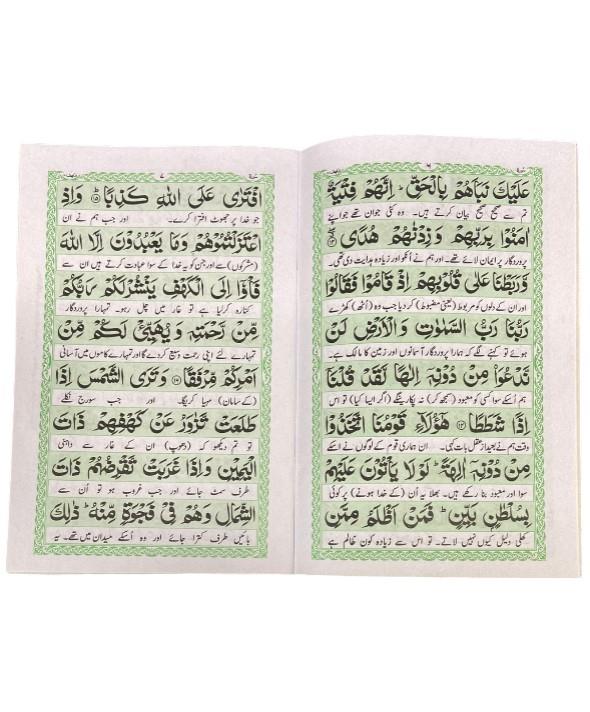 ۶
عَلَيْكَ نَبَاَهُمْ بِالْحَقِّ ؕ اِنَّهُمْ فِتْيَةٌ
تم سے صحیح صحیح بیان کرتے ہیں۔ وہ کئی جوان تھے جو اپنے
اٰمَنُوْا بِرَبِّهِمْ وَ زِدْنٰهُمْ هُدًى ۖ۝۱۳
پروردگار پر ایمان لائے تھے۔ اور ہم نے انکو اور زیادہ ہدایت دی تھی۔
وَّ رَبَطْنَا عَلٰى قُلُوْبِهِمْ اِذْ قَامُوْا فَقَالُوْا
اور ان کے دلوں کو مربوط (یعنی مضبوط) کردیا جب وہ (اُٹھ) کھڑے
رَبُّنَا رَبُّ السَّمٰوٰتِ وَ الْاَرْضِ لَنْ
ہوئے تو کہنے لگے کہ ہمارا پروردگار آسمانوں اور زمین کا مالک ہے۔
نَّدْعُوَا مِنْ دُوْنِهٖۤ اِلٰهًا لَّقَدْ قُلْنَاۤ
ہم اسکے سوا کسی کو معبود (سمجھ کر) نہ پکاریں گے (اگر ایسا کیا) تو اس
اِذًا شَطَطًا ۝۱۴ هٰۤؤُلَآءِ قَوْمُنَا اتَّخَذُوْا
وقت ہم نے بعید از عقل بات کہی۔ ان ہماری قوم کے لوگوں نے اسکے
مِنْ دُوْنِهٖۤ اٰلِهَةً ؕ لَوْ لَا يَاْتُوْنَ عَلَيْهِمْ
سوا اور معبود بنا رکھے ہیں۔ بھلا یہ اُن (کے خدا ہونے) پر کوئی
بِسُلْطٰنٍۭ بَيِّنٍ ؕ فَمَنْ اَظْلَمُ مِمَّنِ
کھلی دلیل کیوں نہیں لاتے۔ تو اس سے زیادہ کون ظالم ہے
۷
افْتَرٰى عَلَى اللّٰهِ كَذِبًا ؕ۝۱۵ وَ اِذِ
جو خدا پر جھوٹ افترا کرے۔ اور جب ہم نے ان
اعْتَزَلْتُمُوْهُمْ وَ مَا يَعْبُدُوْنَ اِلَّا اللّٰهَ
(مشرکوں) سے اور جن کو یہ خدا کے سوا عبادت کرتے ہیں ان سے
فَاْوٗۤا اِلَى الْكَهْفِ يَنْشُرْ لَكُمْ رَبُّكُمْ
کنارہ کرلیا ہے تو غار میں چل رہو۔ تمہارا پروردگار
مِّنْ رَّحْمَتِهٖ وَ يُهَيِّئْ لَكُمْ مِّنْ
تمہارے لئے اپنی رحمت وسیع کردے گا اور تمہارے کاموں میں آسانی
اَمْرِكُمْ مِّرْفَقًا ۝۱۶ وَ تَرَى الشَّمْسَ اِذَا
(کے سامان) مہیا کریگا۔ اور جب سورج نکلے
طَلَعَتْ تَّزٰوَرُ عَنْ كَهْفِهِمْ ذَاتَ
تو تم دیکھو کہ (دھوپ) ان کے غار سے داہنی
الْيَمِيْنِ وَ اِذَا غَرَبَتْ تَّقْرِضُهُمْ ذَاتَ
طرف سمٹ جائے اور جب غروب ہو تو اُن سے
الشِّمَالِ وَ هُمْ فِيْ فَجْوَةٍ مِّنْهُ ؕ ذٰلِكَ
بائیں طرف کترا جائے اور وہ اُسکے میدان میں تھے۔ یہ